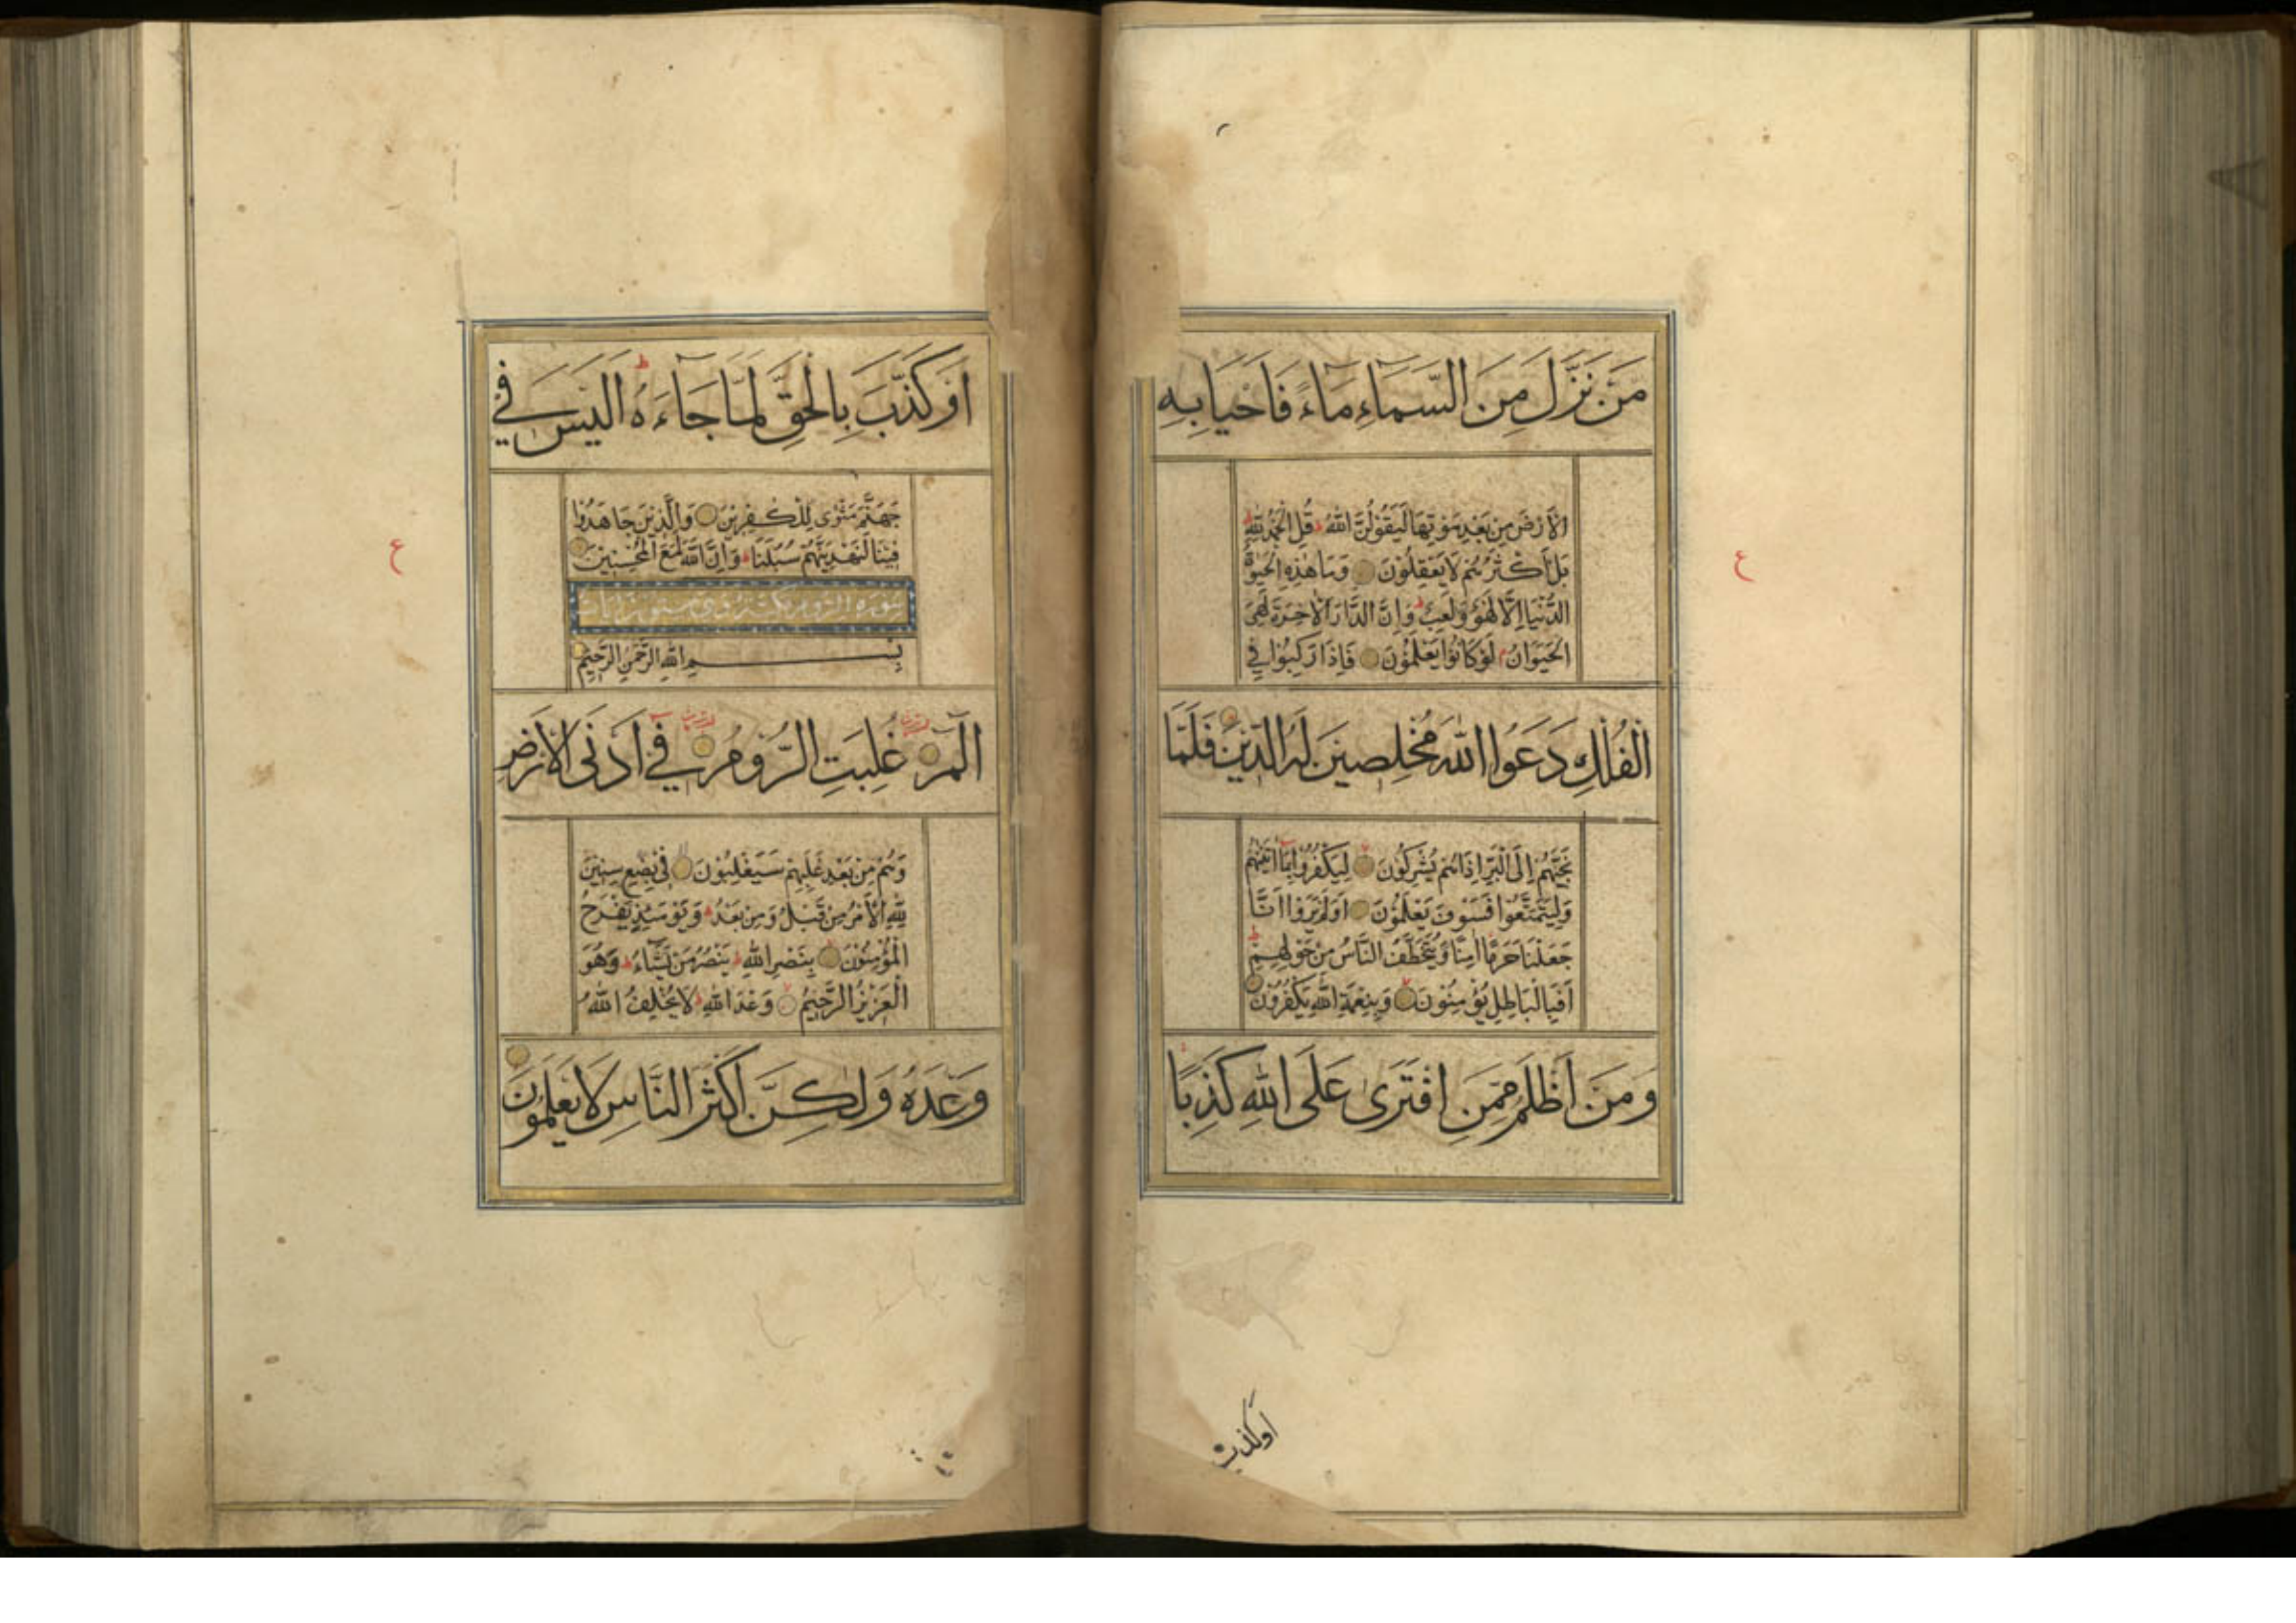 مَنْ نَزَّلَ مِنَ السَّمَاءِ مَاءً فَاَحْيَا بِهِ
الْاَرْضَ مِنْ بَعْدِ مَوْتِهَا لَيَقُولُنَّ اللّٰهُ ط قُلِ الْحَمْدُ لِلّٰهِ ط
بَلْ اَكْثَرُهُمْ لَا يَعْقِلُوْنَ وَمَا هٰذِهِ الْحَيٰوةُ
الدُّنْيَا اِلَّا لَهْوٌ وَلَعِبٌ ط وَاِنَّ الدَّارَ الْاٰخِرَةَ لَهِيَ
الْحَيَوَانُ م لَوْ كَانُوْا يَعْلَمُوْنَ فَاِذَا رَكِبُوْا فِي
الْفُلْكِ دَعَوُا اللّٰهَ مُخْلِصِيْنَ لَهُ الدِّيْنَ فَلَمَّا
نَجّٰهُمْ اِلَى الْبَرِّ اِذَا هُمْ يُشْرِكُوْنَ لِيَكْفُرُوْا بِمَا اٰتَيْنٰهُمْ
وَلِيَتَمَتَّعُوْا فَسَوْفَ يَعْلَمُوْنَ اَوَلَمْ يَرَوْا اَنَّا
جَعَلْنَا حَرَمًا اٰمِنًا وَيُتَخَطَّفُ النَّاسُ مِنْ حَوْلِهِمْ ط
اَفَبِالْبَاطِلِ يُؤْمِنُوْنَ وَبِنِعْمَةِ اللّٰهِ يَكْفُرُوْنَ
وَمَنْ اَظْلَمُ مِمَّنِ افْتَرٰى عَلَى اللّٰهِ كَذِبًا
اوكذب
ع
اَوْ كَذَّبَ بِالْحَقِّ لَمَّا جَاءَهُ ط اَلَيْسَ فِي
جَهَنَّمَ مَثْوًى لِلْكٰفِرِيْنَ وَالَّذِيْنَ جَاهَدُوْا
فِيْنَا لَنَهْدِيَنَّهُمْ سُبُلَنَا ط وَاِنَّ اللّٰهَ لَمَعَ الْمُحْسِنِيْنَ
سورة الروم
بِسْمِ اللّٰهِ الرَّحْمٰنِ الرَّحِيْمِ
الٓمٓ غُلِبَتِ الرُّوْمُ فِي اَدْنَى الْاَرْضِ
وَهُمْ مِنْ بَعْدِ غَلَبِهِمْ سَيَغْلِبُوْنَ فِي بِضْعِ سِنِيْنَ
لِلّٰهِ الْاَمْرُ مِنْ قَبْلُ وَمِنْ بَعْدُ ط وَيَوْمَئِذٍ يَفْرَحُ
الْمُؤْمِنُوْنَ بِنَصْرِ اللّٰهِ ط يَنْصُرُ مَنْ يَشَاءُ ط وَهُوَ
الْعَزِيْزُ الرَّحِيْمُ وَعْدَ اللّٰهِ ط لَا يُخْلِفُ اللّٰهُ
وَعْدَهُ وَلٰكِنَّ اَكْثَرَ النَّاسِ لَا يَعْلَمُوْنَ
ع